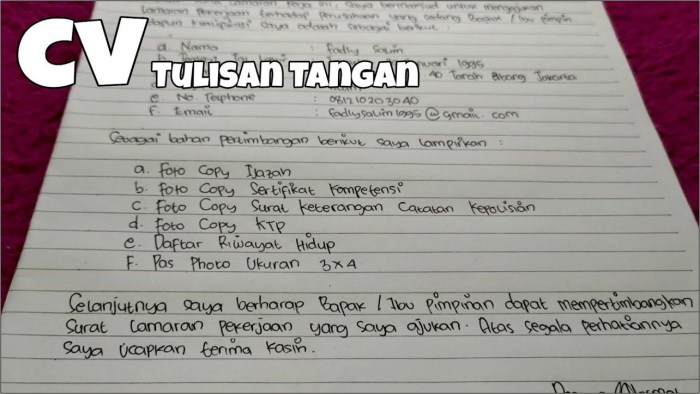 CV TULISAN TANGAN
lamaran Pekerjaan terhadap Perusahaan yang sedang Bapak / Ibu Pimpin
sebagai berikut :
a. Nama : Fadly Salim
1995
40 Tanah Abang Jakarta
e. No. Telphone : 081710203040
F. Email : Fadlysalim1995@gmail.com
Sebagai bahan pertimbangan berikut saya lampirkan :
a. Foto Copy Ijazah
b. Foto Copy Sertifikat Kompetensi
c. Foto Copy Surat Keterangan Catatan Kepolisian
d. Foto Copy KTP
e. Daftar Riwayat Hidup
F. Pas Photo Ukuran 3x4
Selanjutnya saya berharap Bapak / Ibu Pimpinan dapat mempertimbangkan
Surat Lamaran pekerjaan yang saya ajukan. Atas segala perhatiannya
saya ucapkan terima kasih.